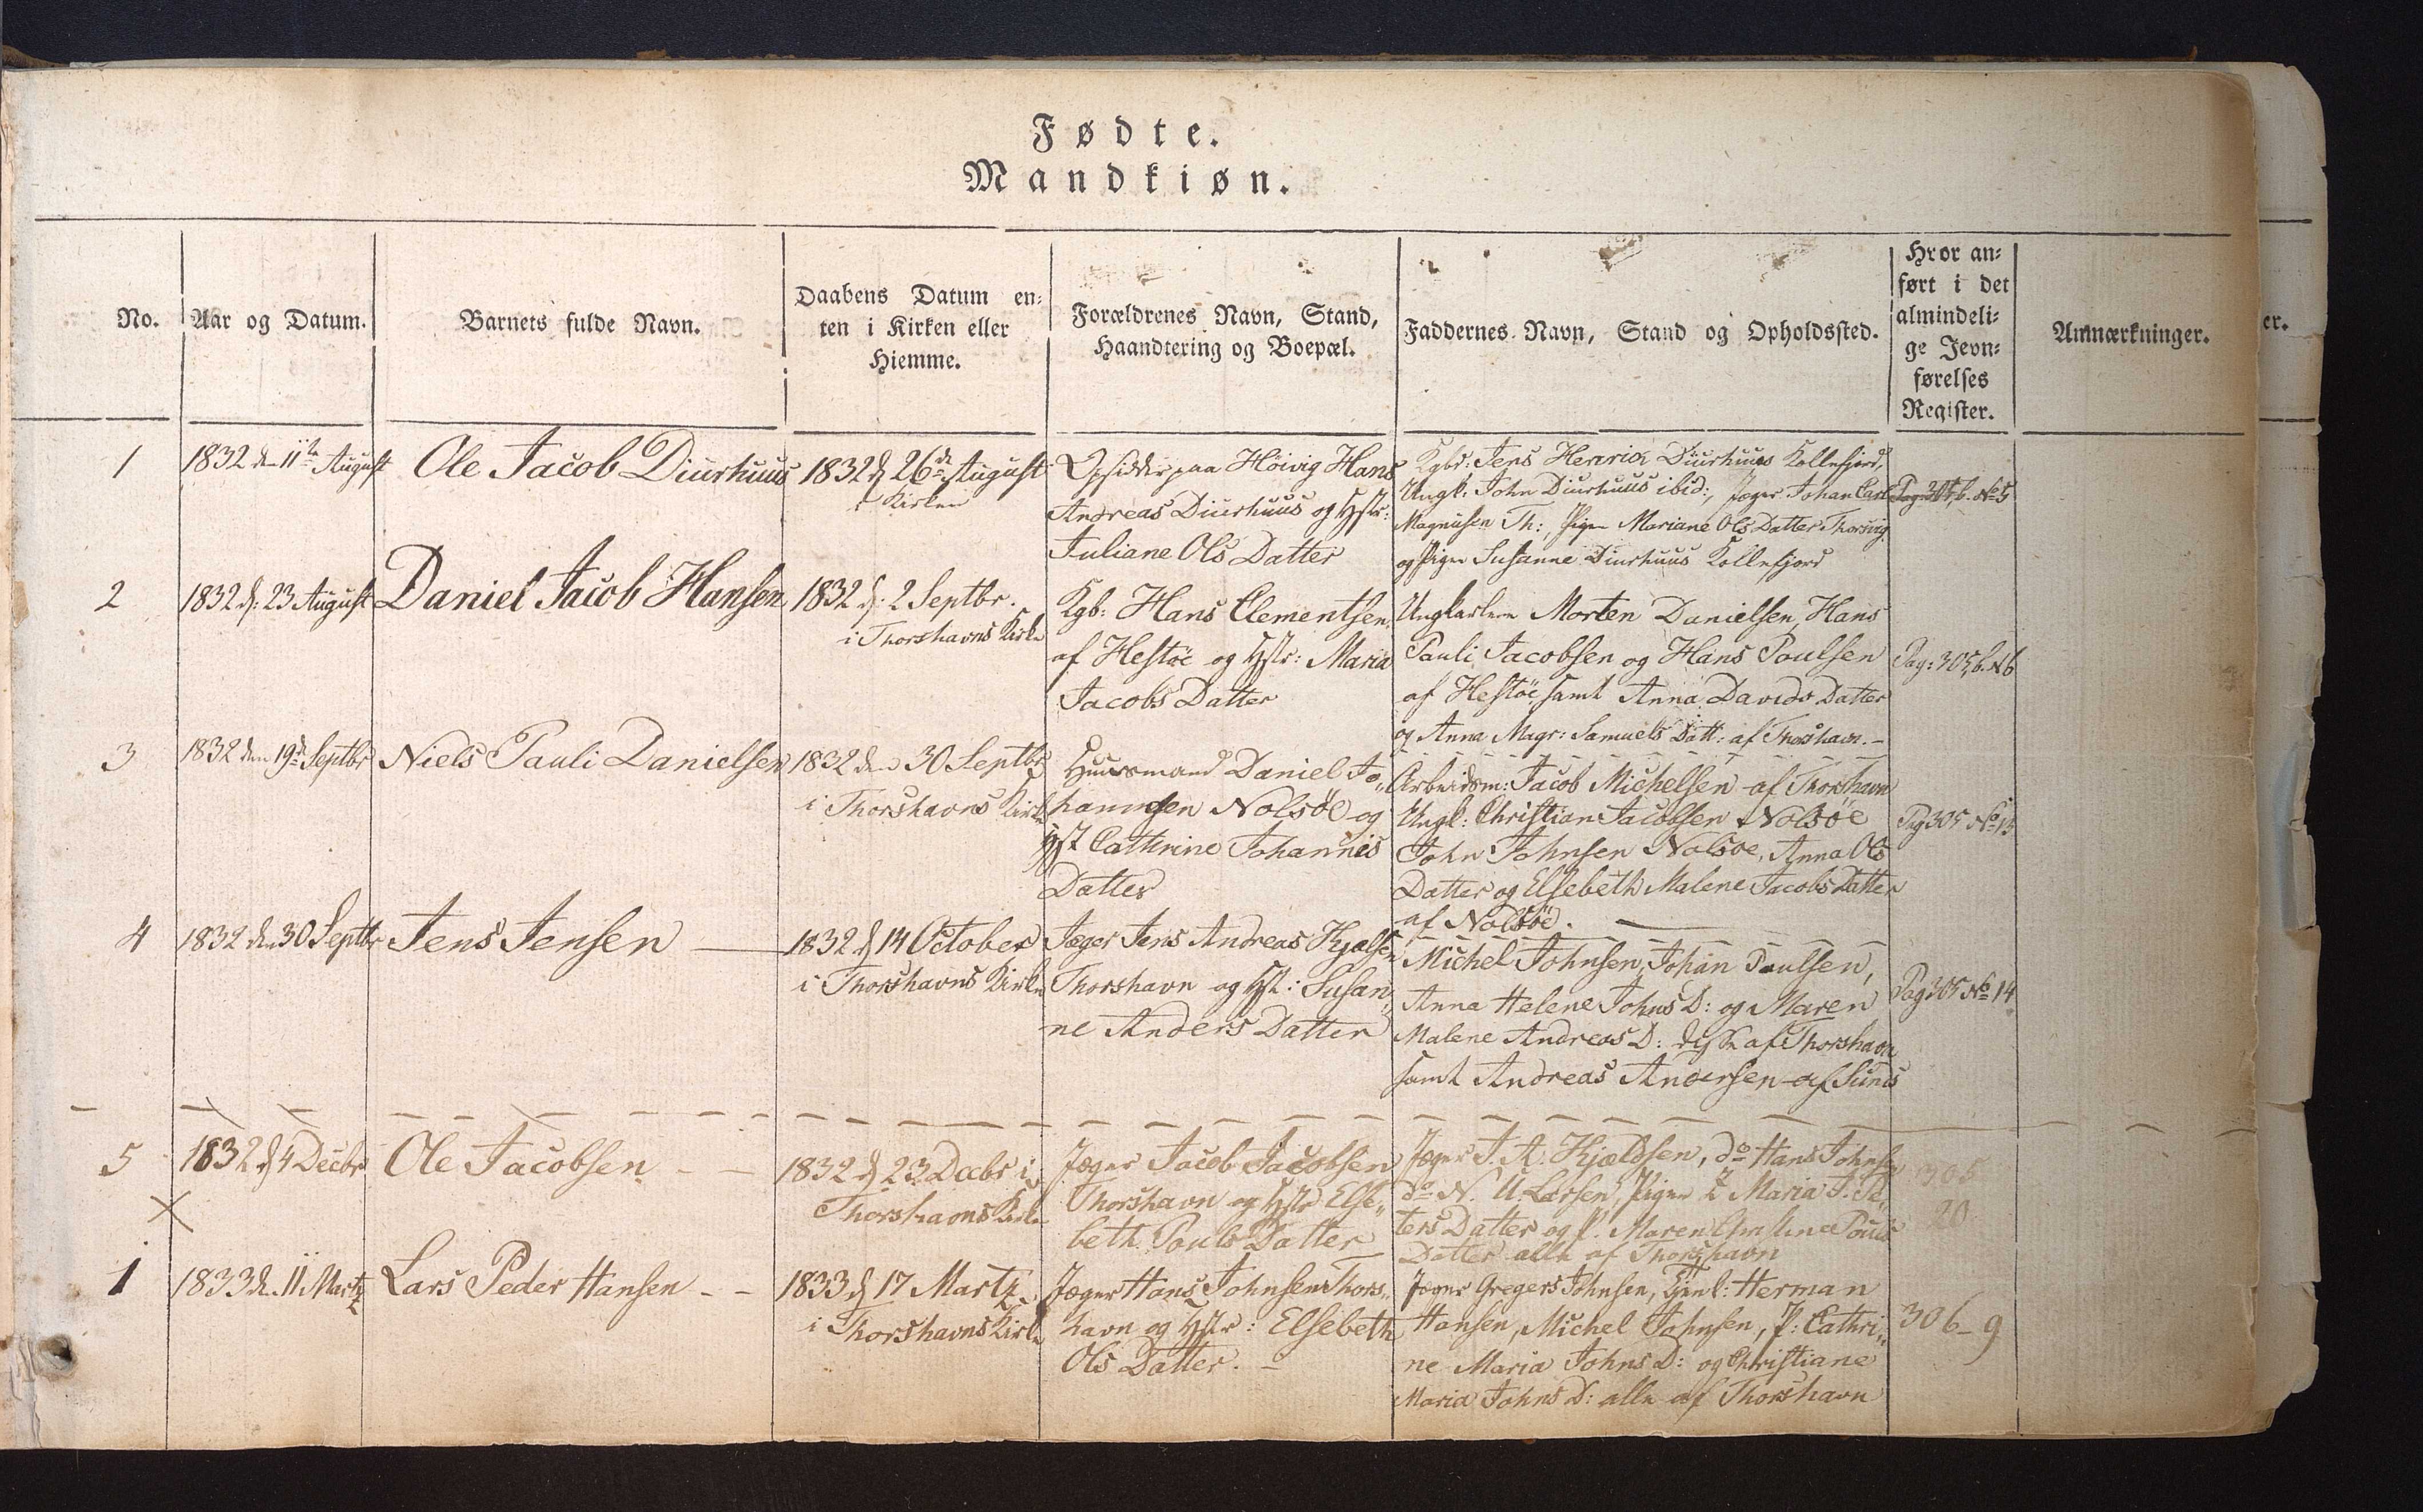 Fødte.
Mandkiøn.
No.
Aar og Datum.
Barnets fulde Navn.
Daabens Datum en-
ten i Kirken eller
Hiemme.
Forældrenes Navn, Stand,
Haandtering og Boepæl.
Faddernes Navn, Stand og Opholdssted.
Hvor an-
ført i det
almindeli-
ge Jevn-
førelses
Register.
Anmærkninger.
er.
1
1832 den 11te August
Ole Jacob Diurhuus
1832 d 26de August
i Kirken
Opsidder paa Höivig Hans
Andreas Diurhuus og Hstr:
Juliane Ols Datter
Kgbd: Jens Henrich Diurhuus Kollefjord,
Ungk: John Diurhuus ibid:, Jæger Johan Carl
Magnusen Th:, Pigen Mariane Ols Datter Thorsvig
og Pigen Susanne Diurhuus Kollefjord
Pag: 305, b. No 5
2
1832 d: 23 August
Daniel Jacob Hansen
1832 d: 2 Septbr.
i Thorshavns Kirke
Kgb: Hans Clementsen
af Hestöe og Hstr: Maria
Jacobs Datter
Ungkarlene Morten Danielsen, Hans
Pauli Jacobsen og Hans Poulsen
af Hestöe samt Anna Davids Datter
og Anna Magr: Samuels Datt: af Thorshavn. -
Pag: 305, b. N 6
3
1832 den 19de Septbr
Niels Pauli Danielsen
1832 den 30 Septbr
i Thorshavns Kirke
Huusmand Daniel Jo„
hannesen Nolsöe og
Hst Cathrine Johannis
Datter
Arbeidsm: Jacob Michelsen af Thorshavn
Ungk: Christian Jacobsen Nolsöe
John Johnsen Nolsöe, Anna Ols
Datter og Elsebeth Malene Jacobs Datter
af Nolsöe.
Pag 305 No 13
4
1832 den 30 Septbr
Jens Jensen
1832 d 14 October
i Thorshavns Kirke
Jæger Jens Andreas Kjælsen
Thorshavn og Hst: Susan„
ne Anders Datter
Michel Johnsen, Johan Paulsen,
Anna Helene Johns D: og Maren
Malene Andreas D: af Thorshavn
samt Andreas Andersen af
Pag 305 No 14
5
1832 d 4 Decbr
Ole Jacobsen - -
1832 d 23 Decbr i
Thorshavns Kirke
Jæger Jacob Jacobsen
Thorshavn og Hstr Else„
beth Pouls Datter
Jæger J. A. Kjældsen, do Hans Johnsen
do N. U. Larsen, Pigen Maria J. Pe„
ters Datter og P. Maren Christine Pouls
Datter alle af Thorshavn
305
20
1
1833 d. 11 Martz
Lars Peder Hansen - -
1833 d 17 Martz
i Thorshavns Kirke
Jæger Hans Johnsen Thors„
havn og Hstr: Elsebeth
Ols Datter. -
Jæger Gregers Johnsen, Herman
Hansen, Michel Johnsen, P: Cathri„
ne Maria Johns D: og Christiane
Maria Johns D: alle af Thorshavn
306-9